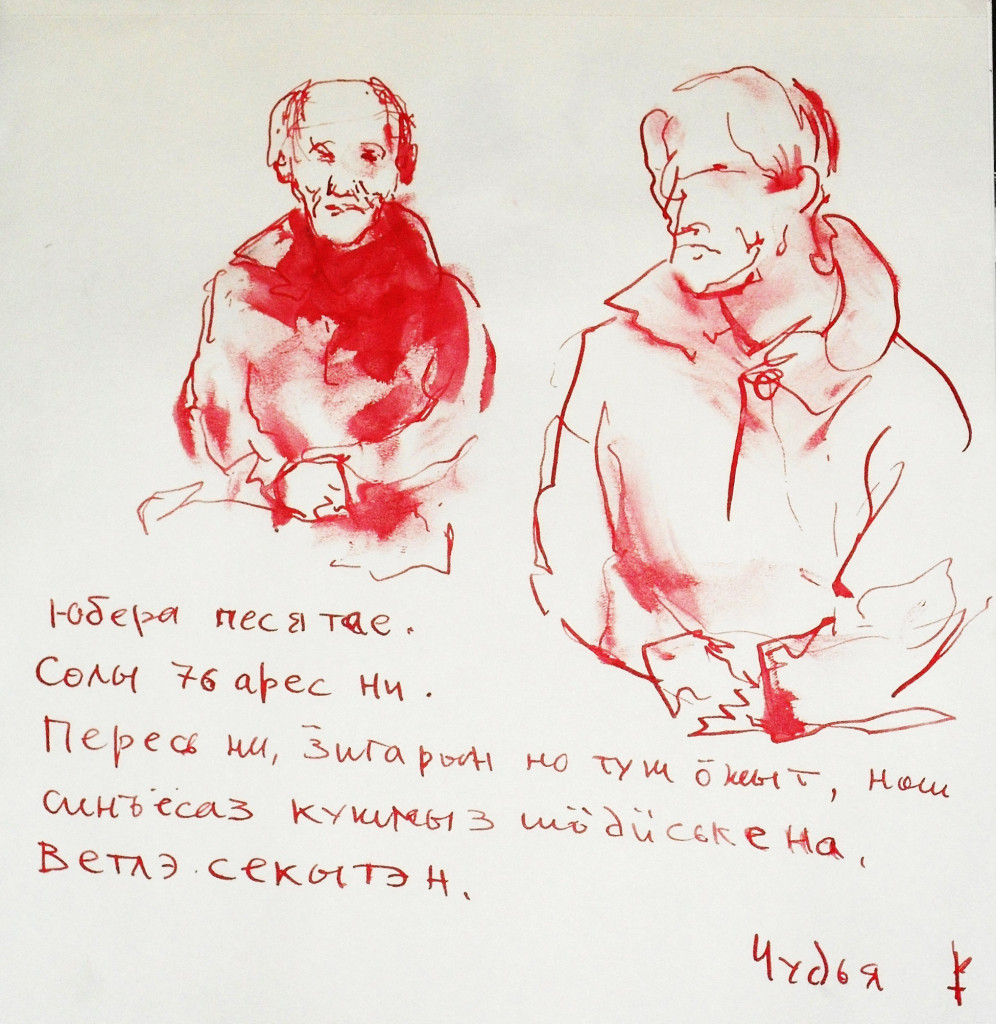 Юбера песятае.
Солы 76 арес ни.
Пересь ни, ӟигарын но туж ӧжыт, нош
синъёсаз кужмыз шӧдӥське на.
Ветлэ секытэн.
Чудья